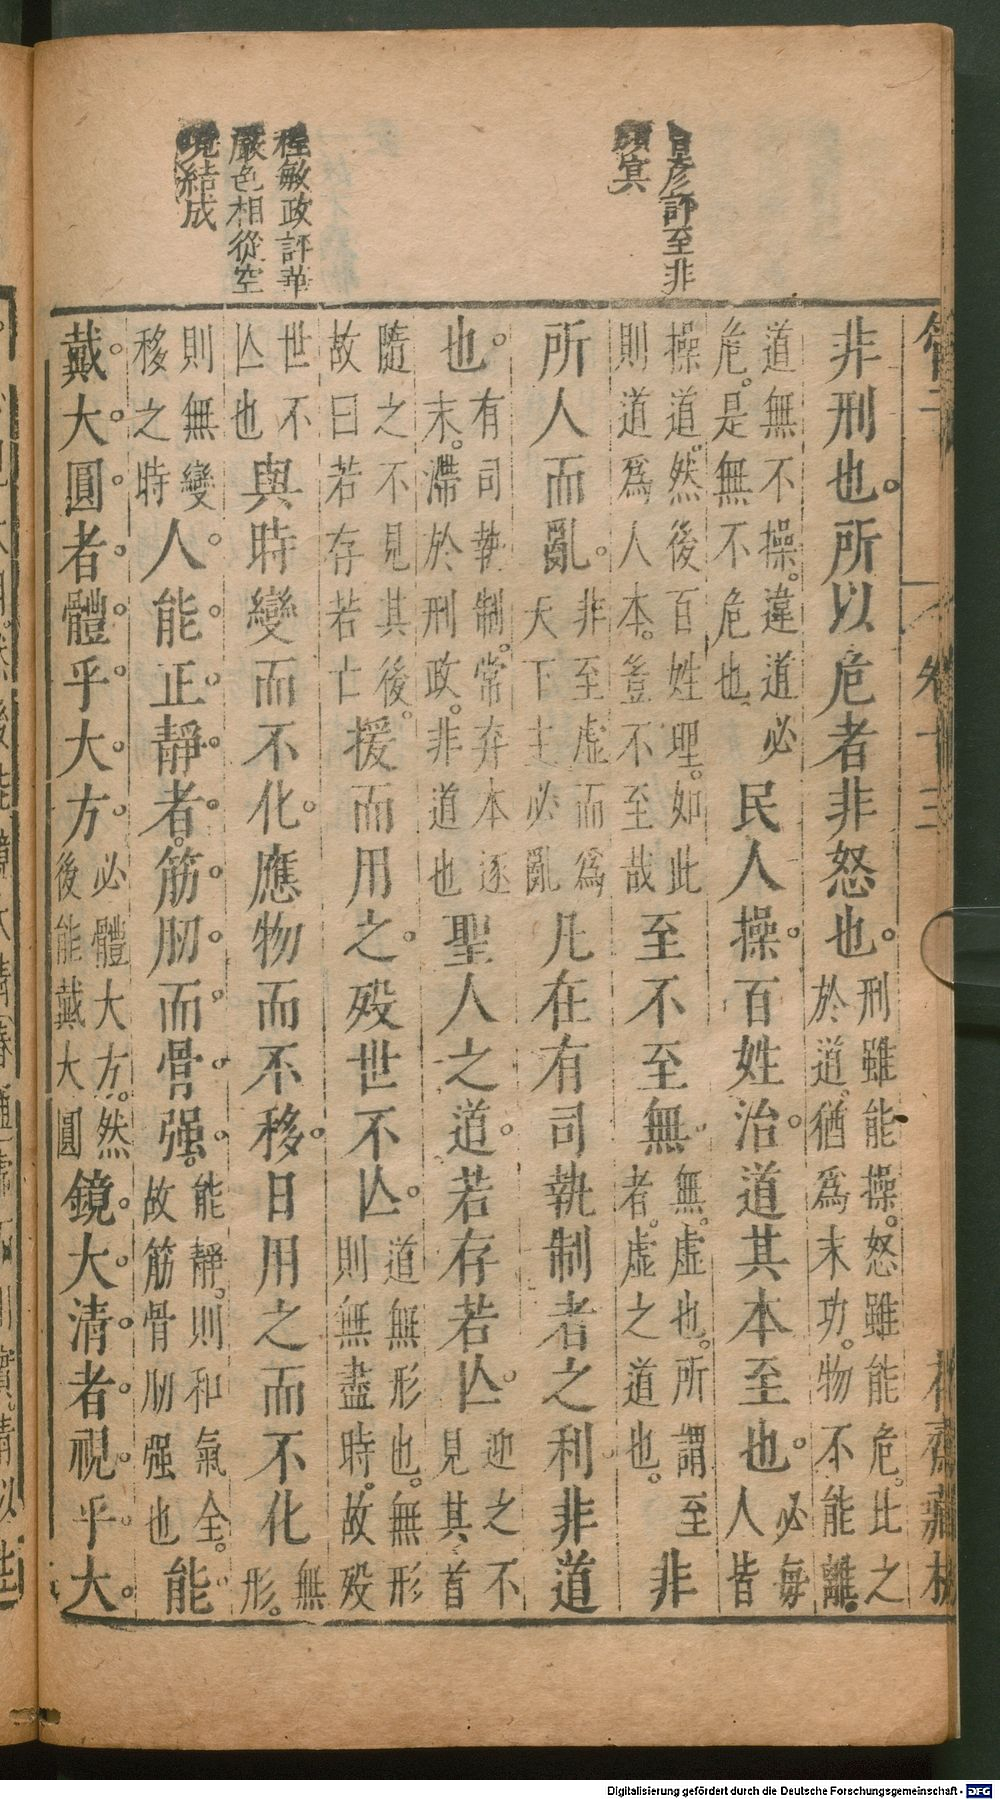 管子 卷十三 花齋藏板
評至非
冥
程敏政評華
嚴色相從空
結成
非刑也。所以危者非怒也。刑雖能操。怒雖能危。此之
於道猶爲末功。物不能離。
道無不操。違道必
危。是無不危也 民人操。百姓治。道其本至也。必每
人皆
操道。然後百姓理。如此
則道爲人本。豈不至哉 至不至無。無。虛也。所謂至
者。虛之道也。 非
所人而亂。非至虛而爲
天下主必亂 凡在有司執制者之利非道
也。有司執制。常弃本逐
末。滯於刑政。非道也 聖人之道。若存若亾。迎之不
見其首
隨之不見其後。
故曰若存若亡 援而用之。殁世不亾。道無形也。無形
則無盡時。故殁
世不
亾也 與時變而不化。應物而不移。日用之而不化 無
形。
則無變
移之時 人能正靜者。筋肕而骨强。能靜。則和氣全。
故筋骨肕强也 能
戴大圓者。體乎大方。必體大方。然
後能戴大圓 鏡大清者。視乎大
Digitalisierung gefördert durch die Deutsche Forschungsgemeinschaft - DFG